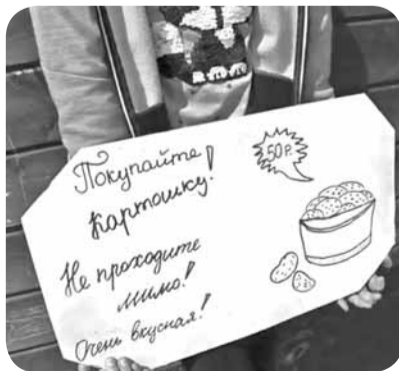 Покупайте
картошку!
50 Р.
Не проходите
мимо!
Очень вкусная!